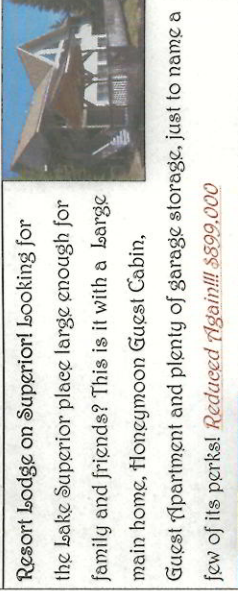 Resort Lodge on Superior! Looking for
the Lake Superior place large enough for
family and friends? This is it with a Large
main home, Honeymoon Guest Cabin,
Guest Apartment and plenty of garage storage, just to name a
few of its perks! Reduced Again!!! $899,000